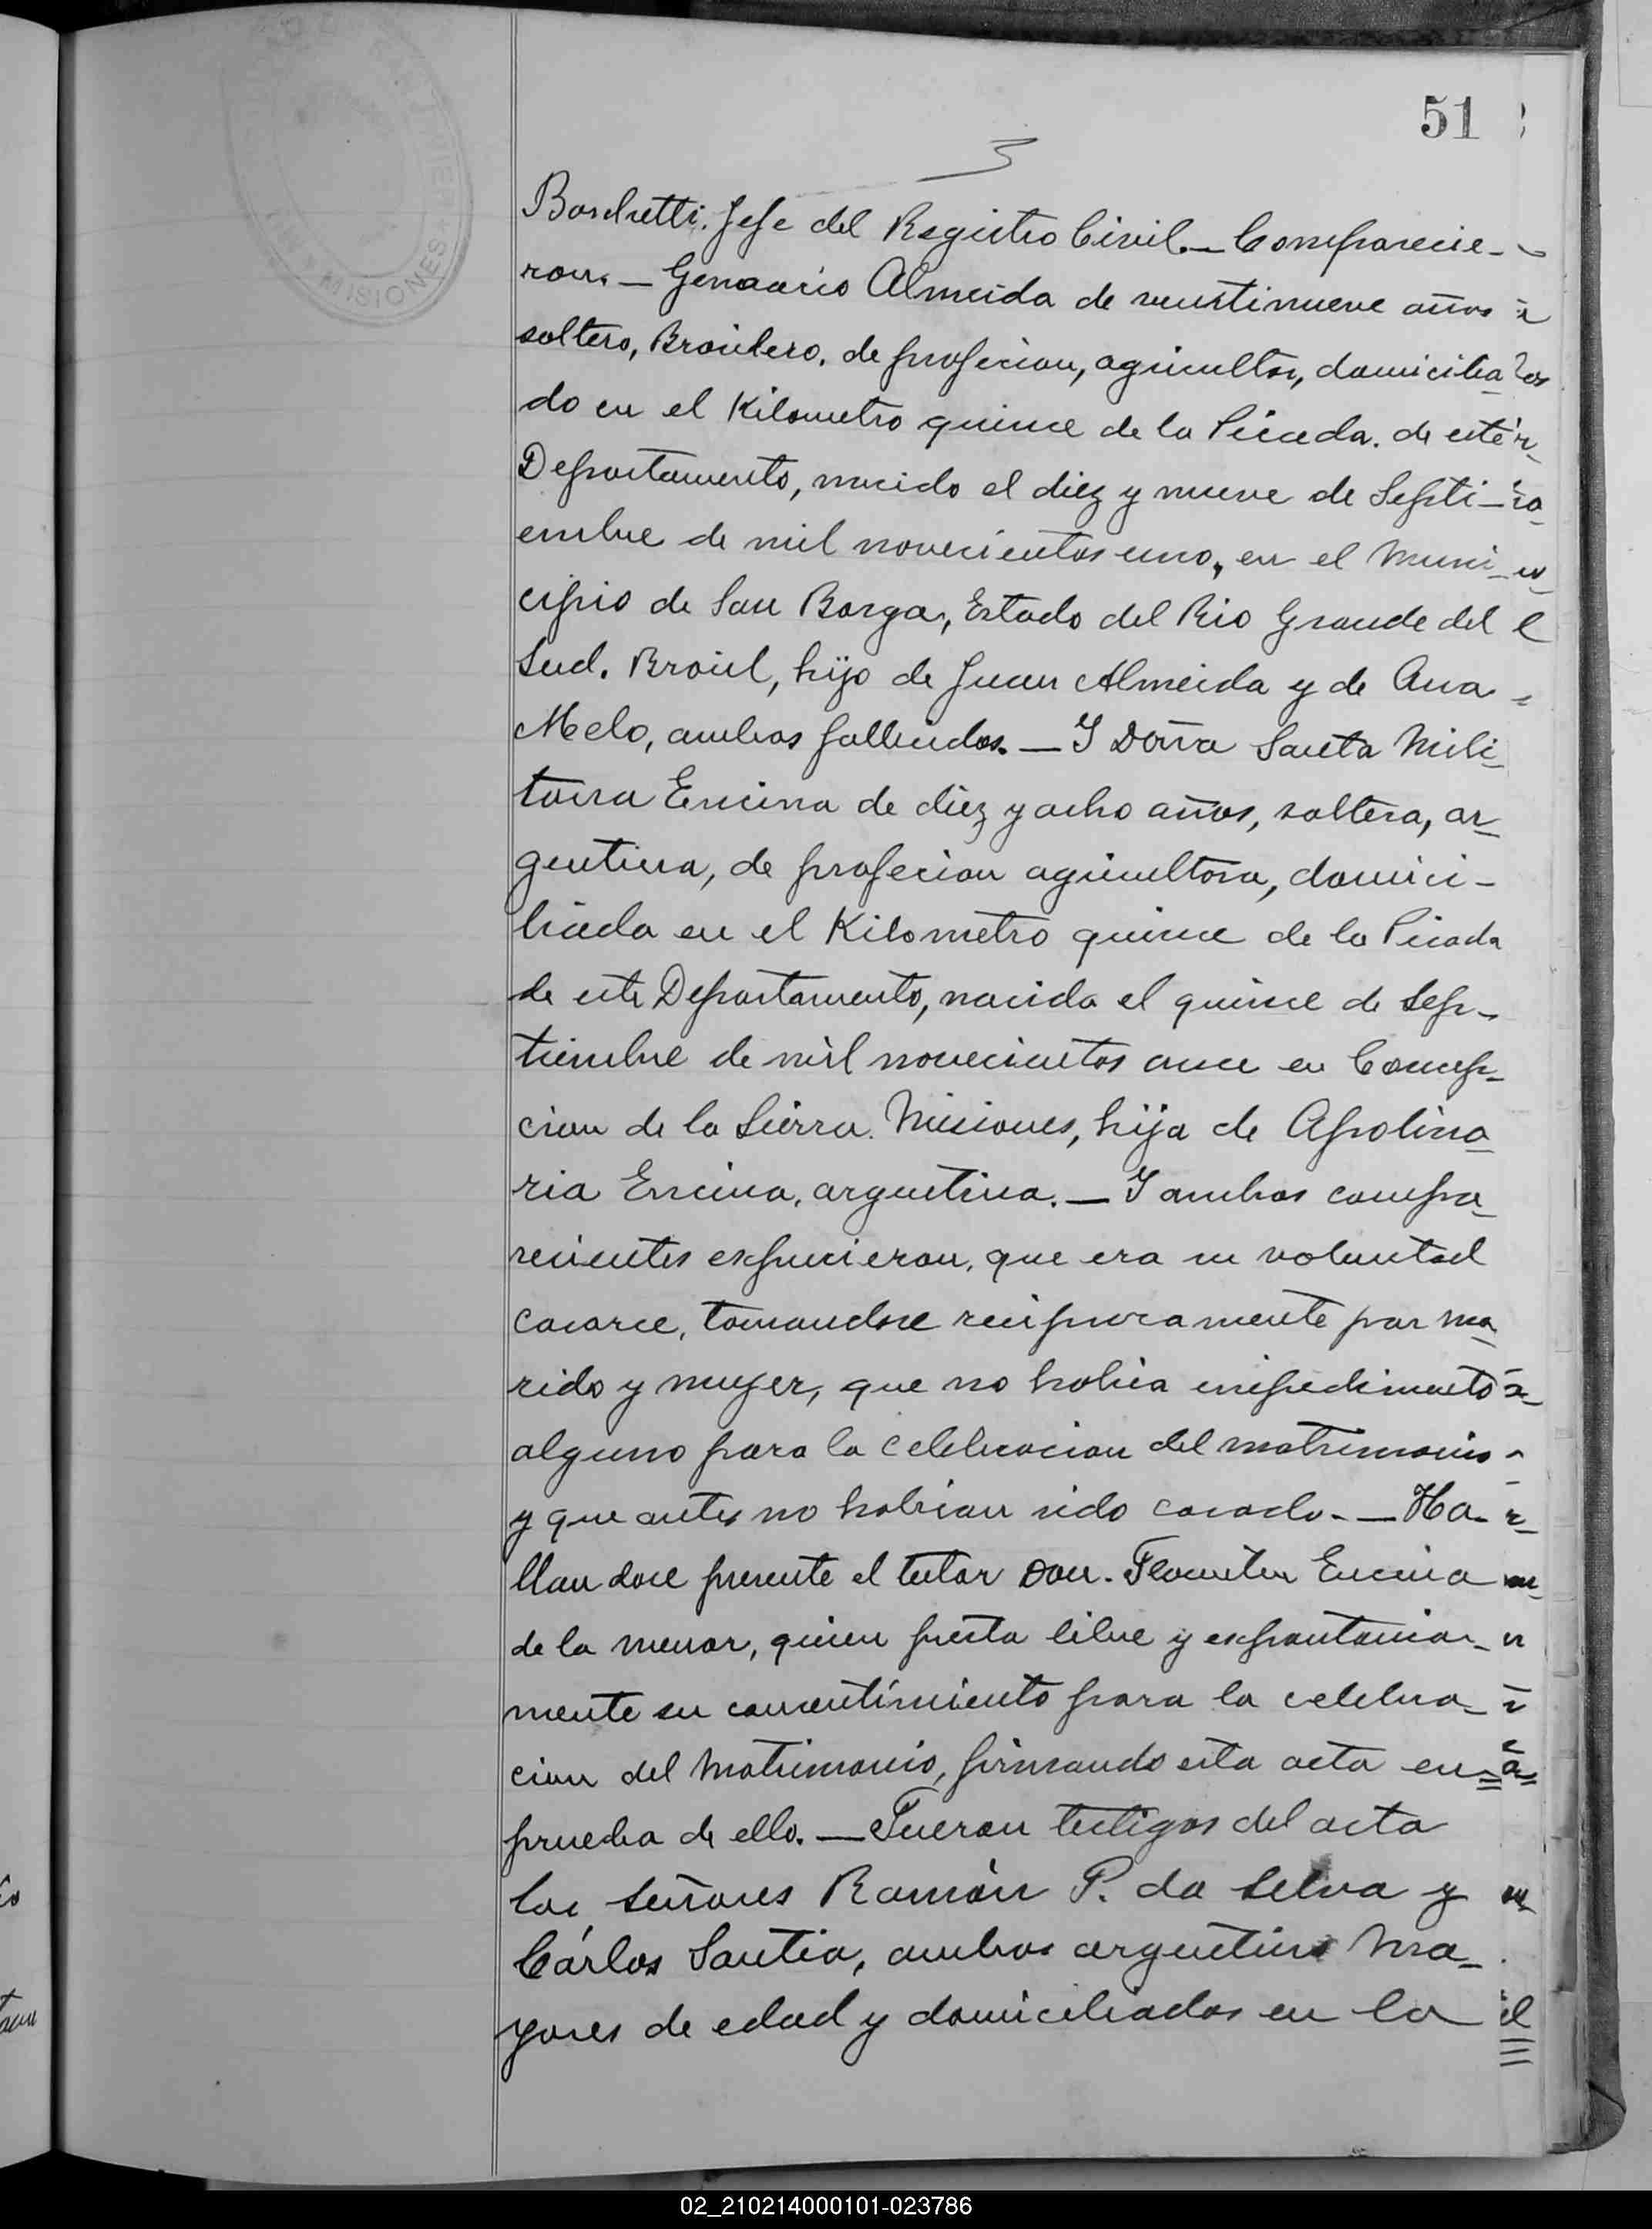 51
3
Boschetti. Jefe del Registro Civil.— Comparecie-
ron.— Genaario Almeida de veintinueve años
soltero, Brasilero, de profecion, agricultor, domicilia
do en el Kilometro quince de la Picada. de este
Departamento, nacido el diez y nueve de Septi-
embre de mil novecientos uno, en el Muni-
cipio de San Borga, Estado del Rio Grande del
Sud. Brasil, hijo de Juan Almeida y de Ana
Melo, ambos fallecidos.— Y Doña Santa Mili-
taira Encina de diez y ocho años, soltera, ar-
gentina, de profecion agricultora, domici-
liada en el Kilometro quince de la Picada
de este Departamento, nacida el quince de Sep-
tiembre de mil novecientos once en Concep-
cion de la Sierra. Misiones, hija de Apolina-
ria Encina, argentina.— Y ambos compa-
recientes expucieron, que era su voluntad
casarce, tomandose reciprocamente por ma-
rido y muger, que no habia impedimento
alguno para la celebracion del matrimonio
y que antes no habian sido casado.— Ha-
llandoce presente el tutor Don. Encina
de la menor, quien presta libre y expontania-
mente su consentimiento para la celebra-
cion del Matrimonio, firmando esta acta en
prueba de ello.— Fueron testigos del acta
los señores Ramón P. da Selva y
Cárlos Santia, ambos argentinos Ma-
yores de edad y domiciliados en la
MISIONES
02_210214000101-023786